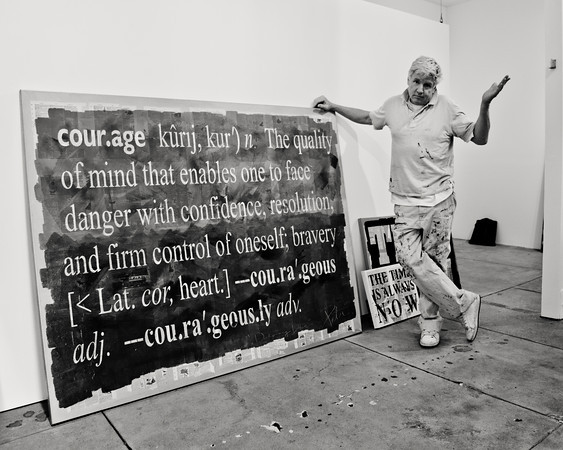 cour.age kûrij, kur') n. The quality
of mind that enables one to face
danger with confidence, resolution,
and firm control of oneself; bravery
[< Lat. cor, heart.] —cou.ra'.geous
adj. —cou.ra'.geous.ly adv.
THE TIME
IS ALWAYS
NOW